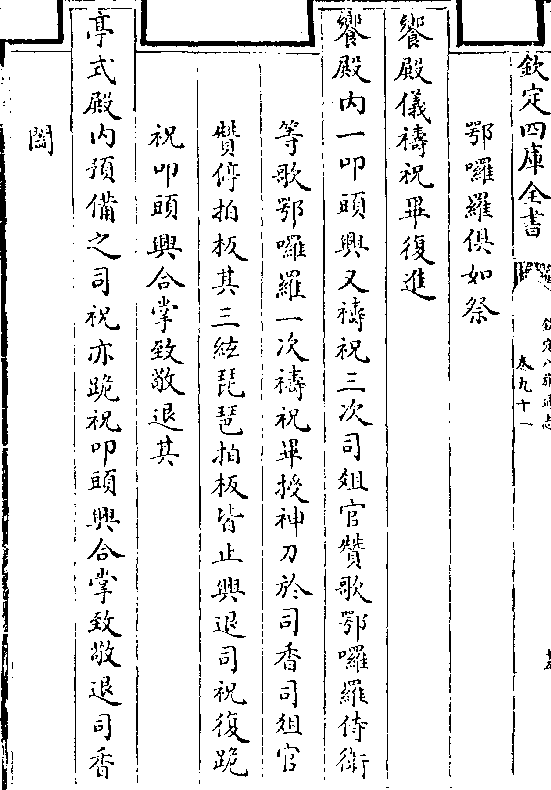 欽定四庫全書
欽定八旗通志
卷九十一
鄂囉羅俱如祭
饗殿儀禱祝畢復進
饗殿内一叩頭興又禱祝三次司俎官贊歌鄂囉羅侍衛
等歌鄂囉羅一次禱祝畢授神刀於司香司俎官
贊停拍板其三絃琵琶拍板皆止興退司祝復跪
祝叩頭興合掌致敬退其
亭式殿内預備之司祝亦跪祝叩頭興合掌致敬退司香
闔